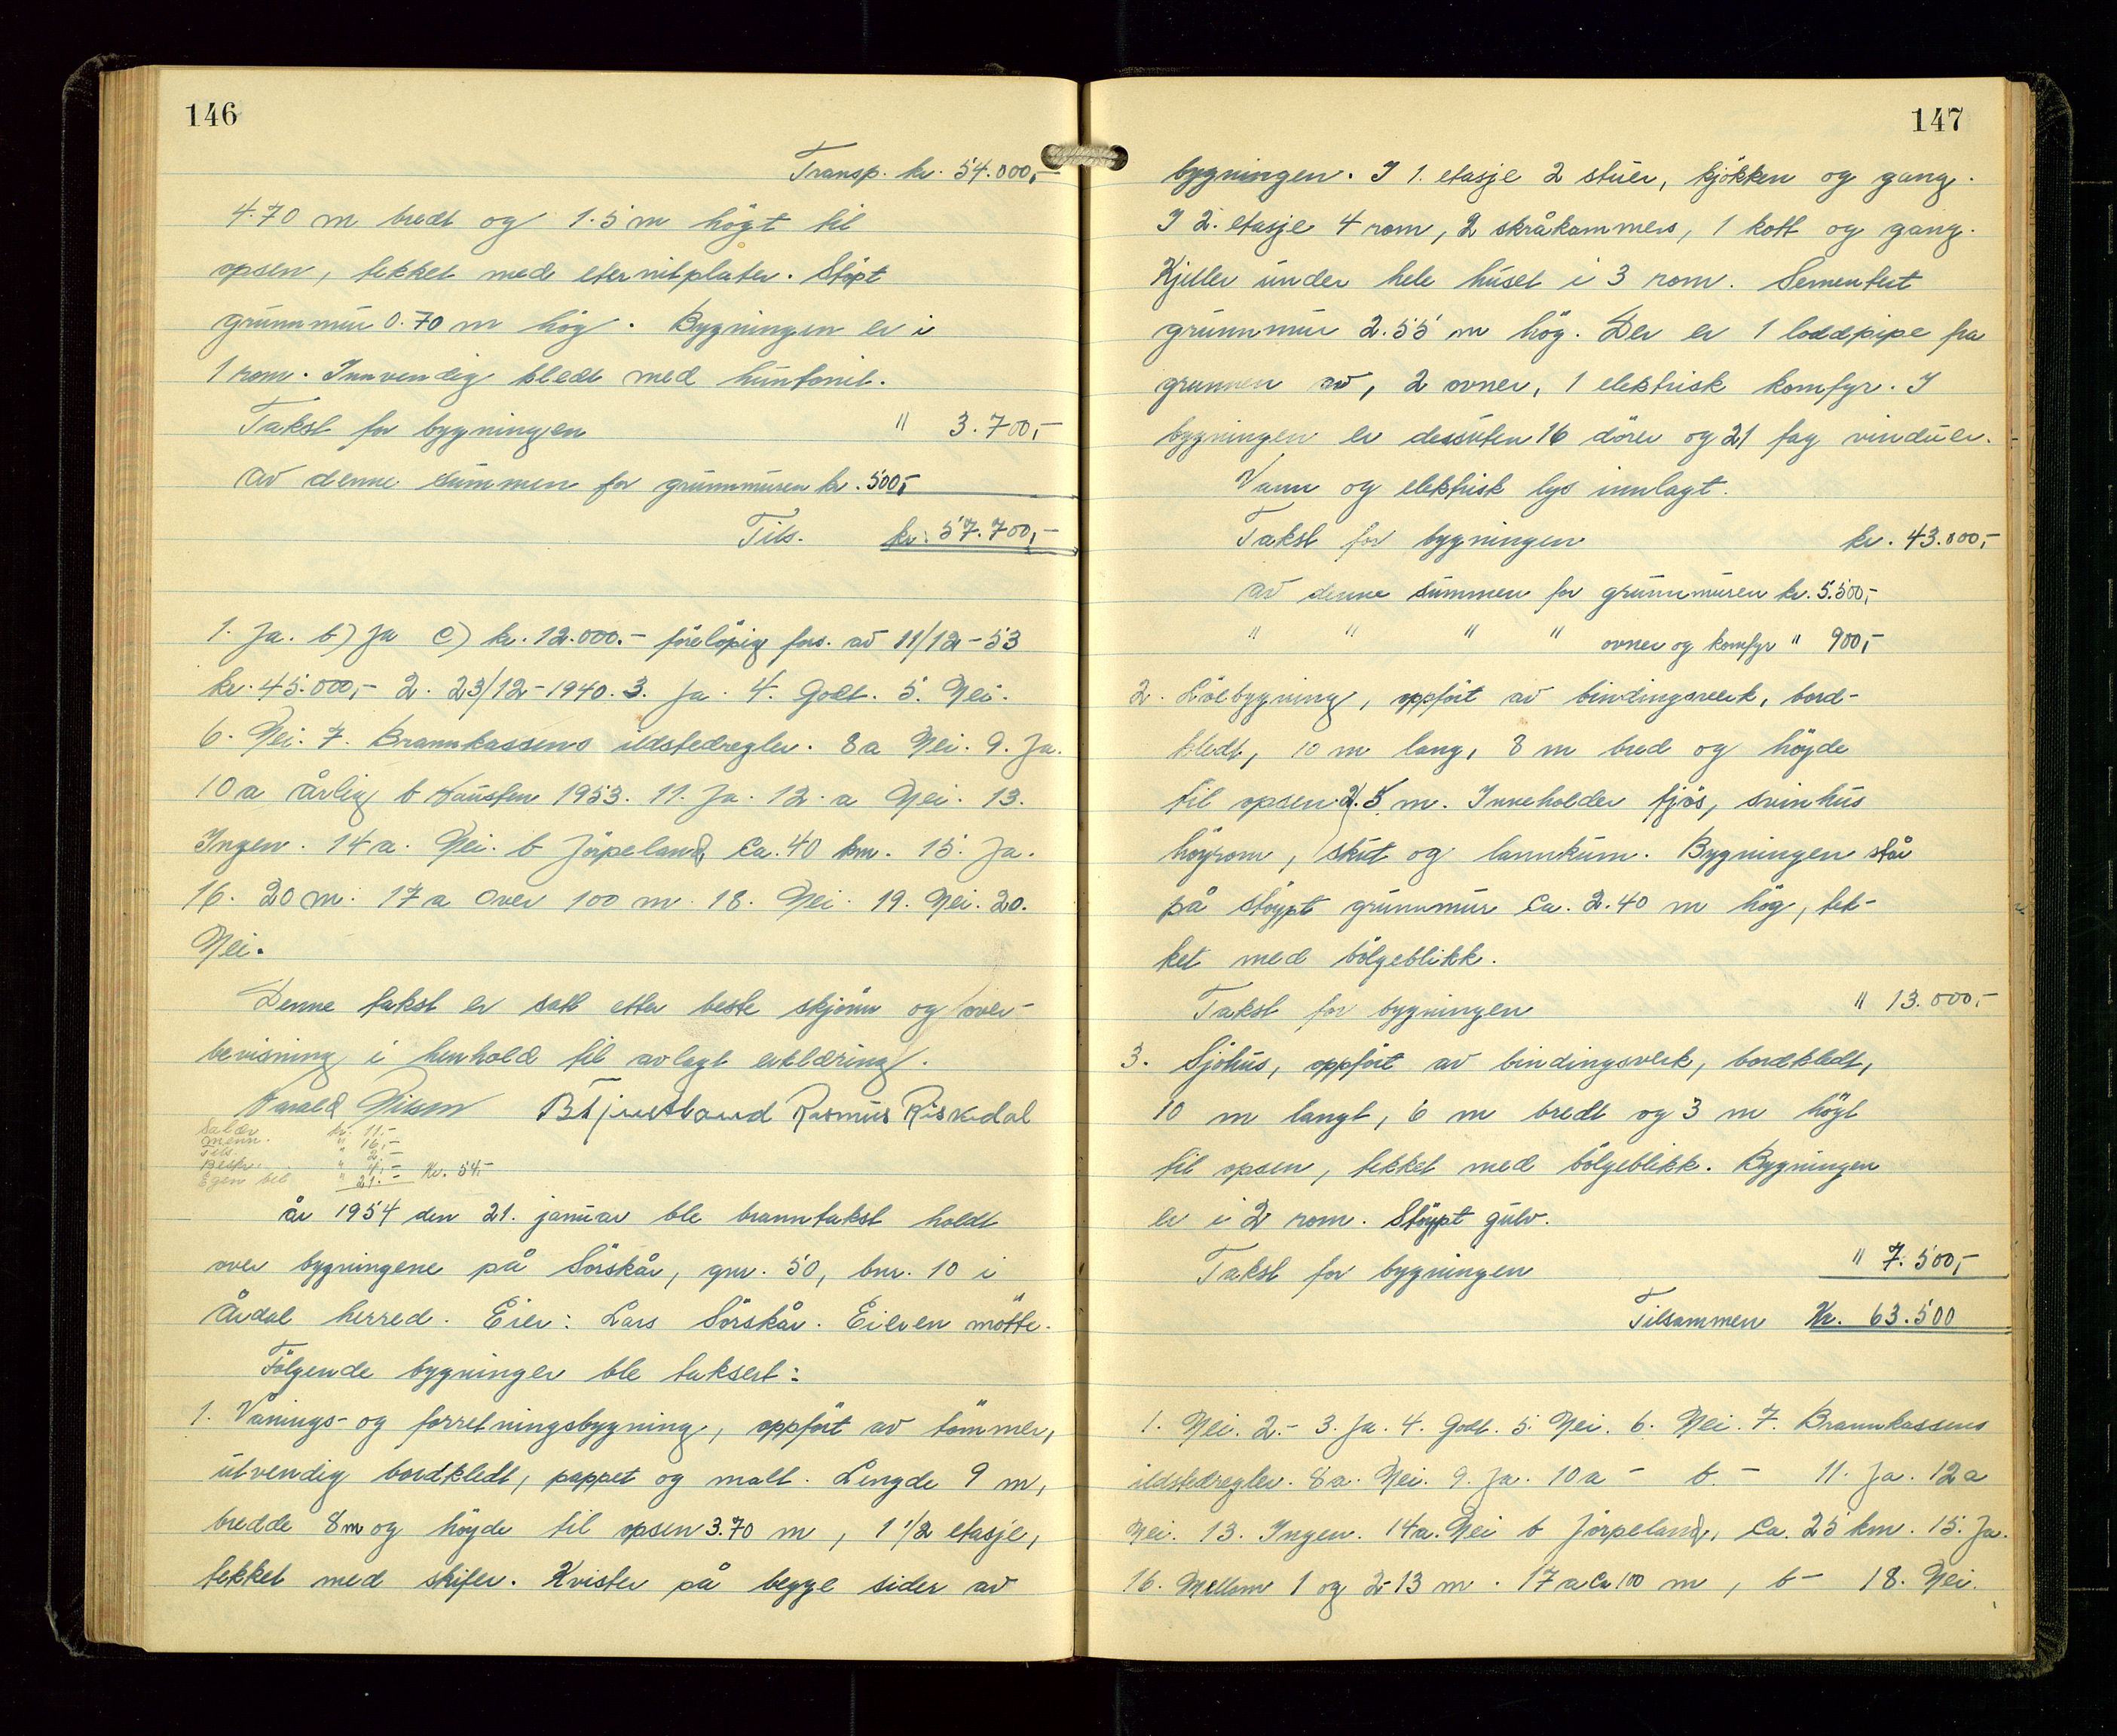 146
Transp. kr. 54.000,-
4.70 m bredt og 1.5 m högt til
opsen, tekket med eternitplater. Stöpt
grunnmur 0.70 m hög. Bygningen er i
1 rom. Innvendig kledt med huntonit.
Takst for bygningen " 3.700,-
av denne summen for grunnmuren kr. 500,-
Tils. kr. 57.700,-
1. Ja. b) Ja c) kr. 12.000.- föreløpig fors. av 11/12-53
kr. 45.000,- 2. 23/12-1940. 3. Ja. 4. Godt. 5. Nei.
6. Nei. 7. Brannkassens ildstedregler. 8a Nei. 9. Ja.
10a årlig b Hausten 1953. 11. Ja. 12. a Nei. 13.
Ingen. 14a. Nei. b Jörpeland, Ca. 40 km. 15. Ja.
16. 20 m. 17a Over 100 m. 18. Nei. 19. Nei. 20.
Nei.
Denne takst er satt etter beste skjönn og over-
bevisning i henhold til avlagt erklæring.
Harald Nilsen B Tjustland Rasmus Riskedal
Salær kr. 11.-
Menn. " 16,-
Tils. " 2.-
Beskr. " 4,- Kr. 54,-
Egen bil " 21.-
år 1954 den 21. januar ble branntakst holdt
over bygningene på Sörskår, gnr. 50, bnr. 10 i
Årdal herred. Eier: Lars Sörskår. Eieren mötte.
Fölgende bygninger ble taksert:
1. Vånings- og forretningsbygning, oppfört av tömmer,
utvendig bordkledt, pappet og malt. Lengde 9 m,
bredde 8 m og höyde til opsen 3.70 m, 1 1/2 etasje,
tekket med skifer. Kvister på begge sider av
147
bygningen. I 1. etasje 2 stuer, kjökken og gang.
I 2. etasje 4 rom, 2 skråkammers, 1 kott og gang.
Kjeller under hele huset i 3 rom. Sementert
grunnmur 2.55 m hög. Der er 1 loddpipe fra
grunnen av, 2 ovner, 1 elektrisk komfyr. I
bygningen er dessuten 16 dörer og 21 fag vinduer.
Vann og elektrisk lys innlagt.
Takst for bygningen kr. 43.000,-
av denne summen for grunnmuren kr. 5.500,-
" " " " ovner og komfyr " 900,-
2. Löebygning, oppfört av bindingsverk, bord-
kledt, 10 m lang, 8 m bred og höyde
til opsen 2.5 m. Inneholder fjös, svinhus
höyrom, skut og lannkum. Bygningen står
på stöypt grunnmur ca. 2.40 m hög, tek-
ket med bölgeblikk.
Takst for bygningen " 13.000,-
3. Sjöhus, oppfört av bindingsverk, bordkledt,
10 m langt, 6 m bredt og 3 m högt
til opsen, tekket med bölgeblikk. Bygningen
er i 2 rom. Stöypt gulv.
Takst for bygningen " 7.500,-
Tilsammen Kr. 63.500
1. Nei. 2.- 3. Ja. 4. Godt. 5. Nei. 6. Nei. 7. Brannkassens
ildstedregler. 8a. Nei. 9. Ja. 10a - b. - 11. Ja. 12a
Nei. 13. Ingen. 14a. Nei b Jörpeland, Ca. 25 km. 15. Ja.
16. Mellom 1 og 2 13 m. 17a Ca 100 m, b - 18. Nei.